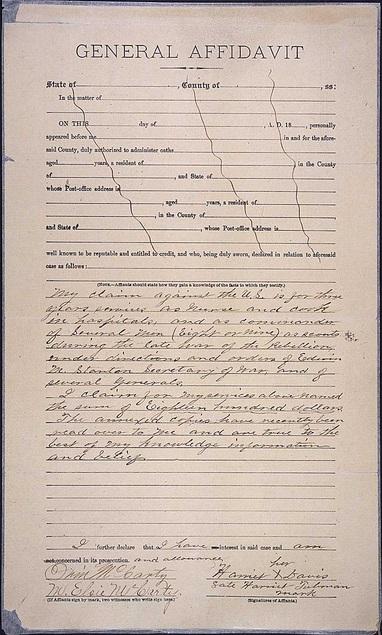 GENERAL AFFIDAVIT
State of , County of , ss:
In the matter of
ON THIS day of , A. D. 18 , personally
appeared before me in and for the afore-
said County, duly authorized to administer oaths
aged years, a resident of in the County
of , and State of
whose Post-office address is
, aged years, a resident of
, in the County of
and State of , whose Post-office address is
well known to be reputable and entitled to credit, and who, being duly sworn, declared in relation to aforesaid
case as follows:
(NOTE.—Affiants should state how they gain a knowledge of the facts to which they testify.)
My claim against the U.S. is for three
years services as Nurse and cook
in hospitals, and as commander
of Several men (eight or nine) as scouts
during the late War of the Rebellion
under directions and orders of Edwin
M. Stanton Secretary of War, and of
several Generals.
I claim for my services above named
the sum of Eighteen hundred dollars.
The annexed copies have recently been
read over to me and are true to the
best of my knowledge information
and belief.
I further declare that I have interest in said case and am
concerned in its prosecution. and allowance.
Dan McCarty
M. Elsie McCarty
(If Affiants sign by mark, two witnesses who write sign here.)
her
Harriet X Davis
late Harriet Tubman
mark
(Signatures of Affiants.)